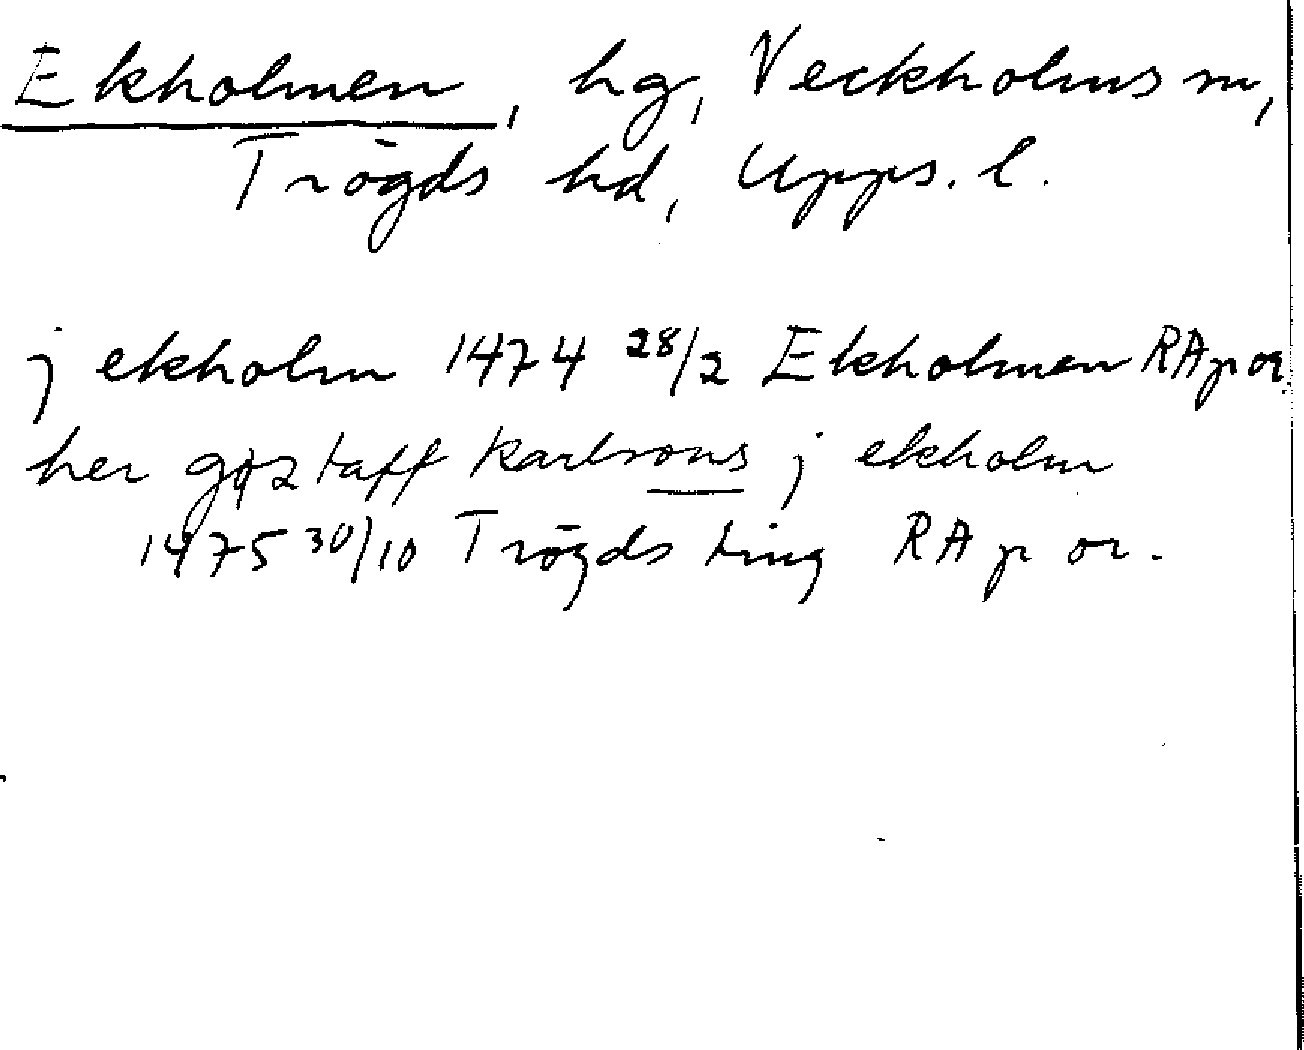 Ekholmen, hg, Veckholms sn,
Trögds hd, Upps. l.
j ekholm 1474 28/2 Ekholmen RAp or.
her gøstaff karlsons j ekholm
1475 30/10 Trögds ting RA p or.